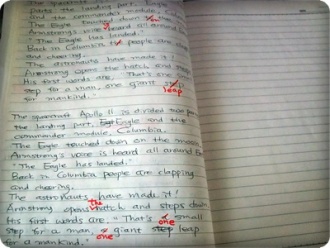 The spacecraft
parts the landing part, Eagle
and the commander module,
The Eagle touched down
Armstrong's voice heard all around
"The Eagle has landed."
Back in Columbia people are clapp
and cheering.
The astronauts have made it!
Armstrong opens the hatch and step
His first words are, "That's one
step for a man, one giant step
leap
for mankind."
The spacecraft Apollo 11 is divided two par
the landing part, Eagle and the
commander module, Columbia.
The Eagle touched down on the moo
Armstrong's voice is heard all around E
"The Eagle has landed."
Back in Columbia people are clapping
and cheering.
The astronauts have made it!
the
Armstrong opens hatch and steps down
one
His first words are, "That's small
step for a man, giant step leap
one
for a mankind."